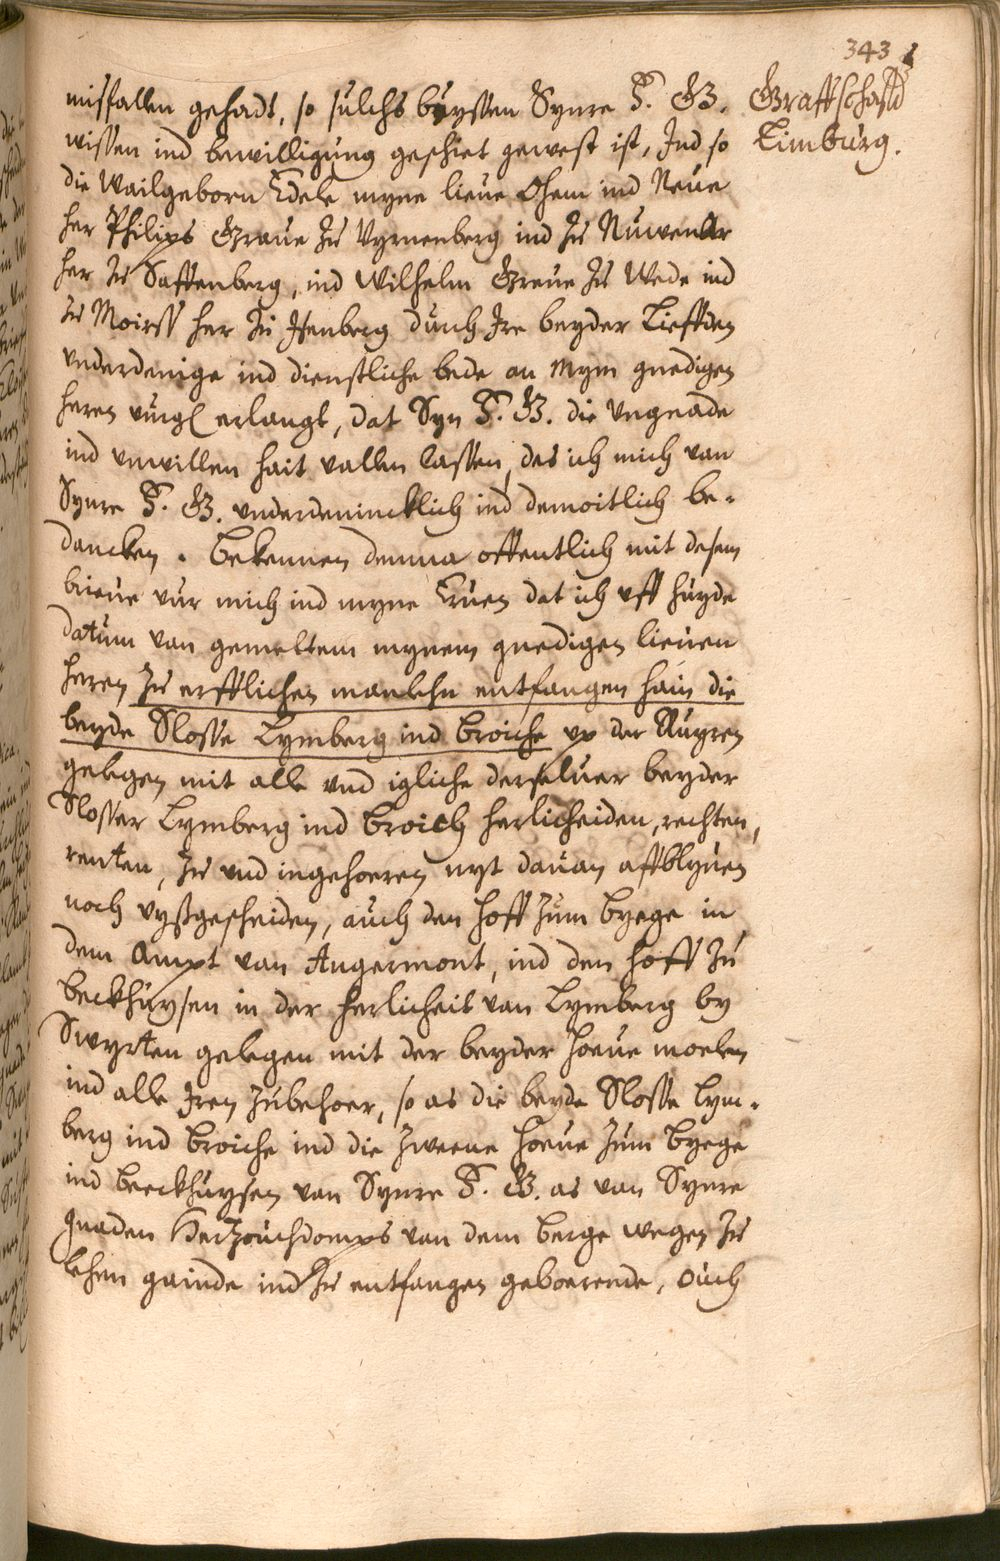 343
Graffschafft
Limburg.
misfallen gehadt, so sulchs buyssen Synre F. G.
wissen ind bewilligung geschiet gewest ist, Ind so
die Wailgeborn Edele myne lieue Ohem ind Neue
her Philips Graue zu Vyrnenberg ind zu Nuwenar
her zu Saffenberg, ind Wilhelm Greue zu Wede ind
zu Moirss her zu Isenberg durch Ire beyder Liefften
underdenige ind dienstliche bede an Mym gnedigen
heren vurgl erlangt, dat Syn F. G. die Vngnade
ind vnwillen hait vallen lassen, des ich mich van
Synre F. G. underdenincklich ind demoitlich be-
dancken. Bekennen demna offentlich mit desem
brieue vur mich ind myne Eruen dat ich vff huyde
datum van gemeltem mynem gnedigen lieuen
heren zu erfflichen manlehn entfangen hain die
beyde Slosse Lymberg ind Broiche vp der Ruyren
gelegen mit alle vnd igliche derseluer beyder
Slosser Lymberg ind Broich herlicheiden, rechten,
renten, zu vnd ingehoeren nyt dauan affblyuen
noch vyssgescheiden, auch den hoff zum Byege in
dem Ampt van Angermont, ind den hoff zu
Beckhuysen in der herlicheit van Lymberg by
Swyrten gelegen mit der beyder hoeue moelen
ind alle Iren zubehoer, so as die beyde Slosse Lym-
berg ind Broiche ind die zweene hoeue zum Byege
ind Beeckhuysen van Synre F. G. as van Synre
gnaden Hertzouchdomps van dem Berge wegen zu
lehen gainde ind zu entfangen geboerende, ouch